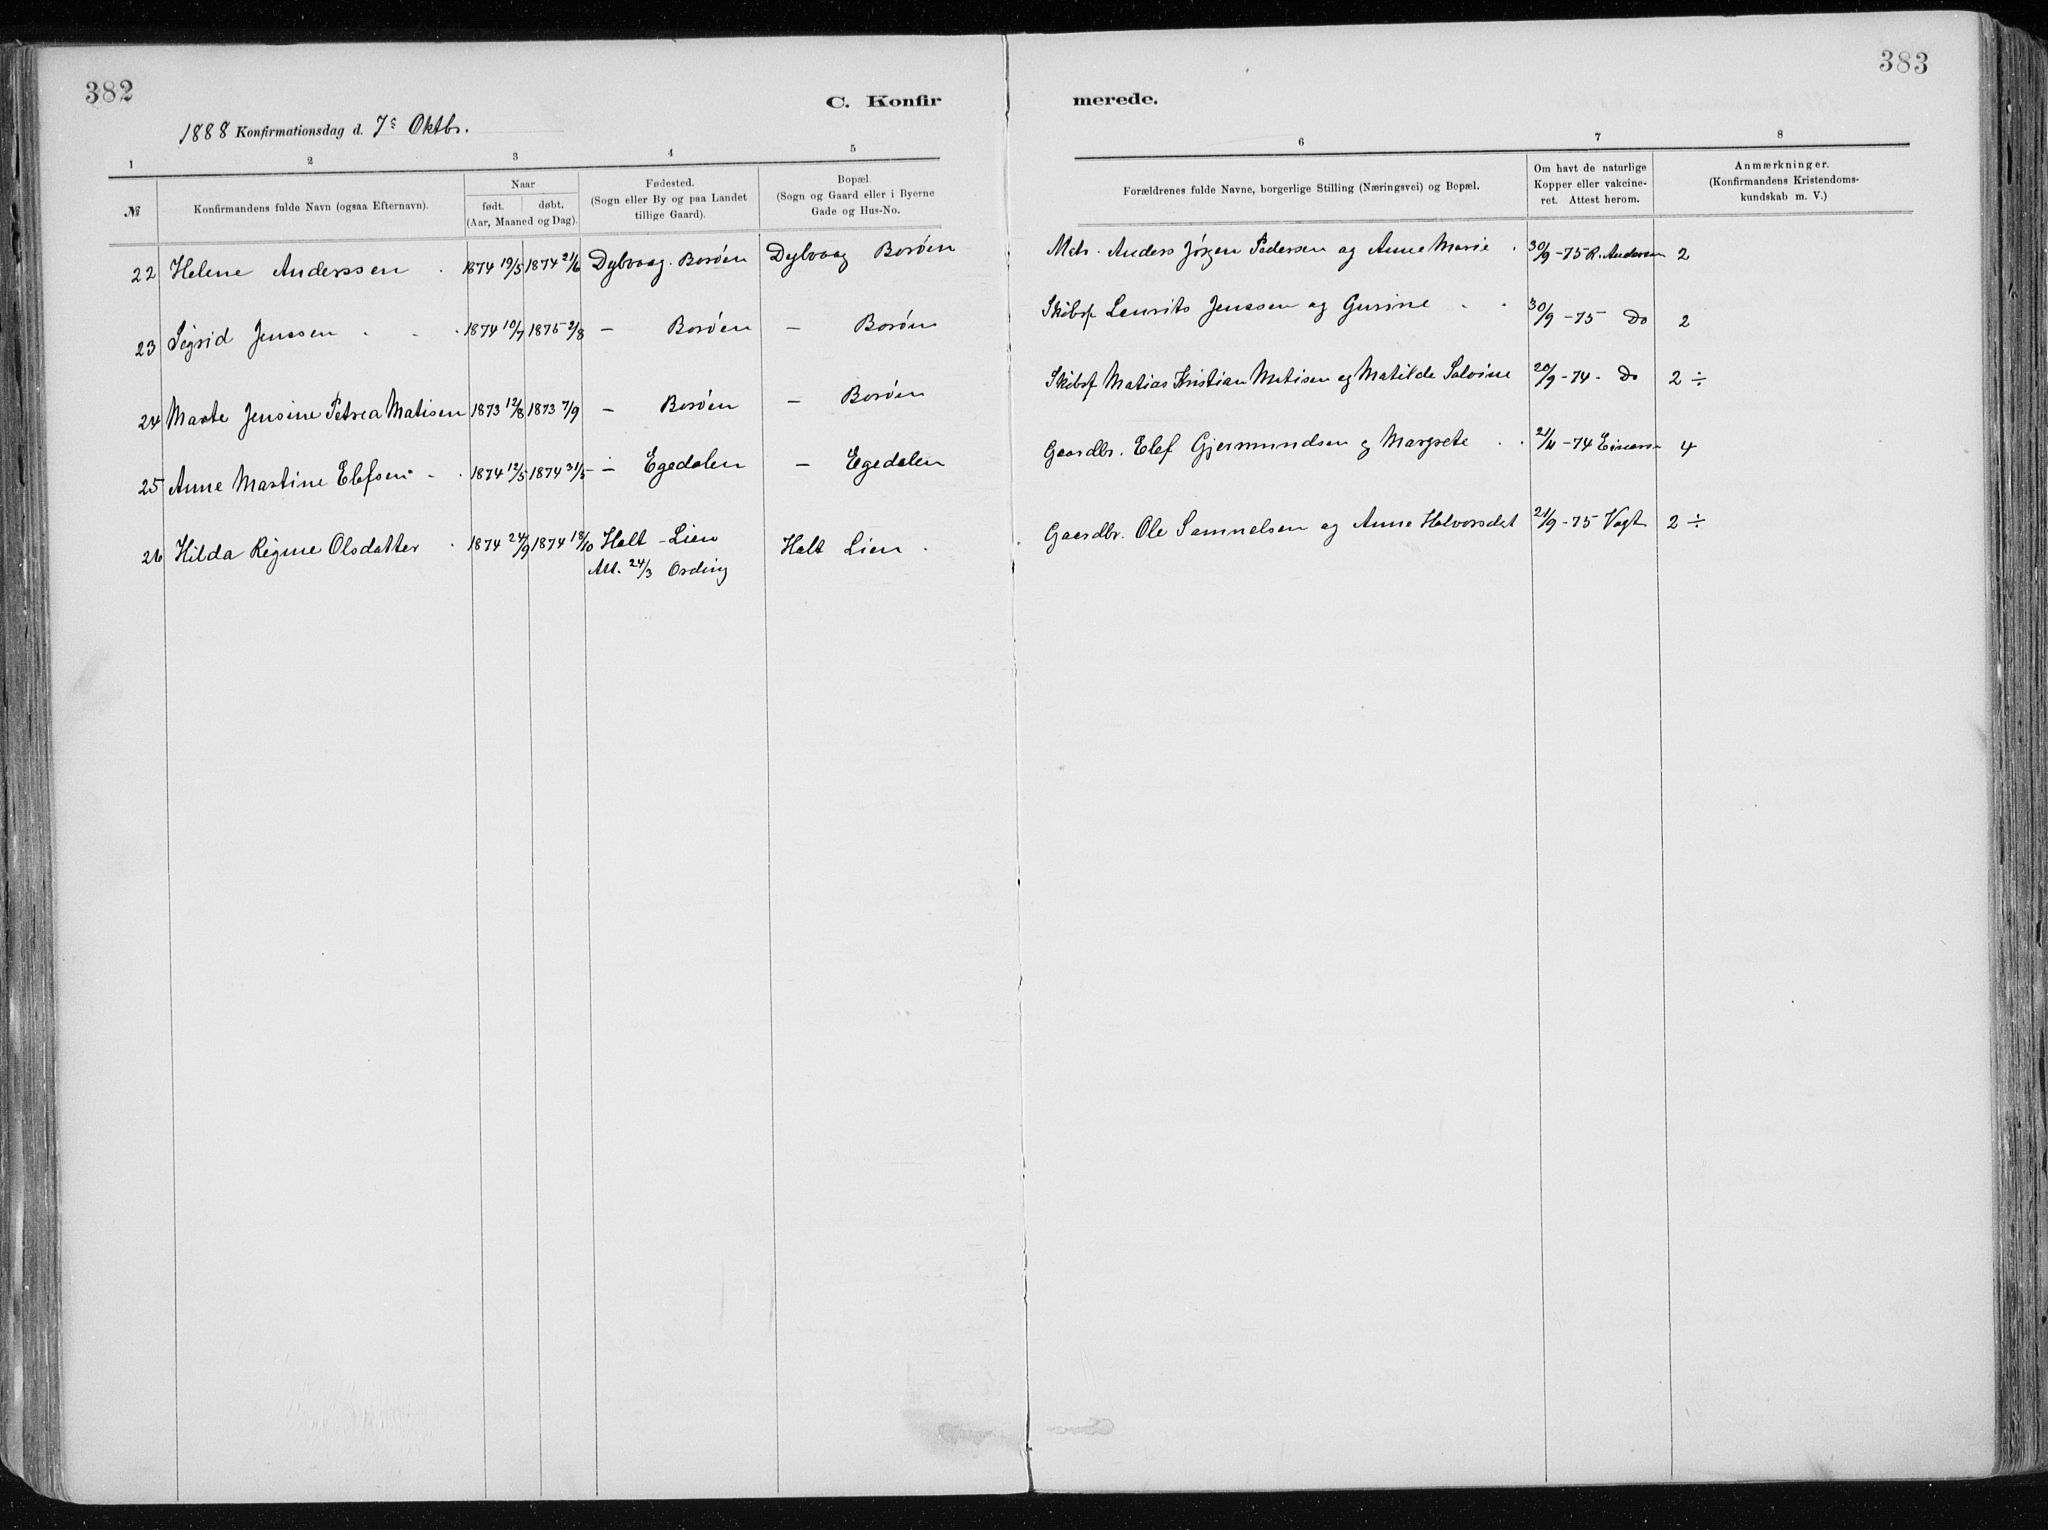 382
383
C. Konfir merede.
1888 Konfirmationsdag d. 7s Oktbr.
1 2 3 4 5 6 7 8
№ Konfirmandens fulde Navn (ogsaa Efternavn). Naar født. døbt. (Aar, Maaned og Dag). Fødested. (Sogn eller By og paa Landet tillige Gaard). Bopæl. (Sogn og Gaard eller i Byerne Gade og Hus-No. Forældrenes fulde Navne, borgerlige Stilling (Næringsvei) og Bopæl. Om havt de naturlige Kopper eller vakcineret. Attest herom. Anmærkninger. (Konfirmandens Kristendomskundskab m. V.)
22 Helene Anderssen . 1874 19/5 1874 21/6 Dybvaag. Borøen Dybvaag Borøen Mtr. Anders Jørgen Pedersen og Anne Marie . 30/9 -75 R. Andersen 2
23 Sigrid Jenssen . . . 1874 10/7 1875 2/8 — Borøen — Borøen Skibsf Laurits Jenssen og Gurine . . 30/9 -75 Do 2
24 Marte Jensine Petrea Matisen 1873 12/8 1873 7/9 — Borøen — Borøen Skibsf Matias Kristian Matisen og Matilde Salvine 20/9 -74 - Do 2 ÷
25 Anne Martine Elefsen . . 1874 12/5 1874 31/5 — Egedalen — Egedalen Gaardbr. Elef Gjermundsen og Margrete . . -74 4
26 Hilda Regine Olsdatter . 1874 24/9 1874 18/10 Holt - Lien Holt Lien . Gaardbr. Ole Samuelsen og Anne Halvorsdat 21/9 -75 Vogt 2 ÷
Att. 24/3 Ording